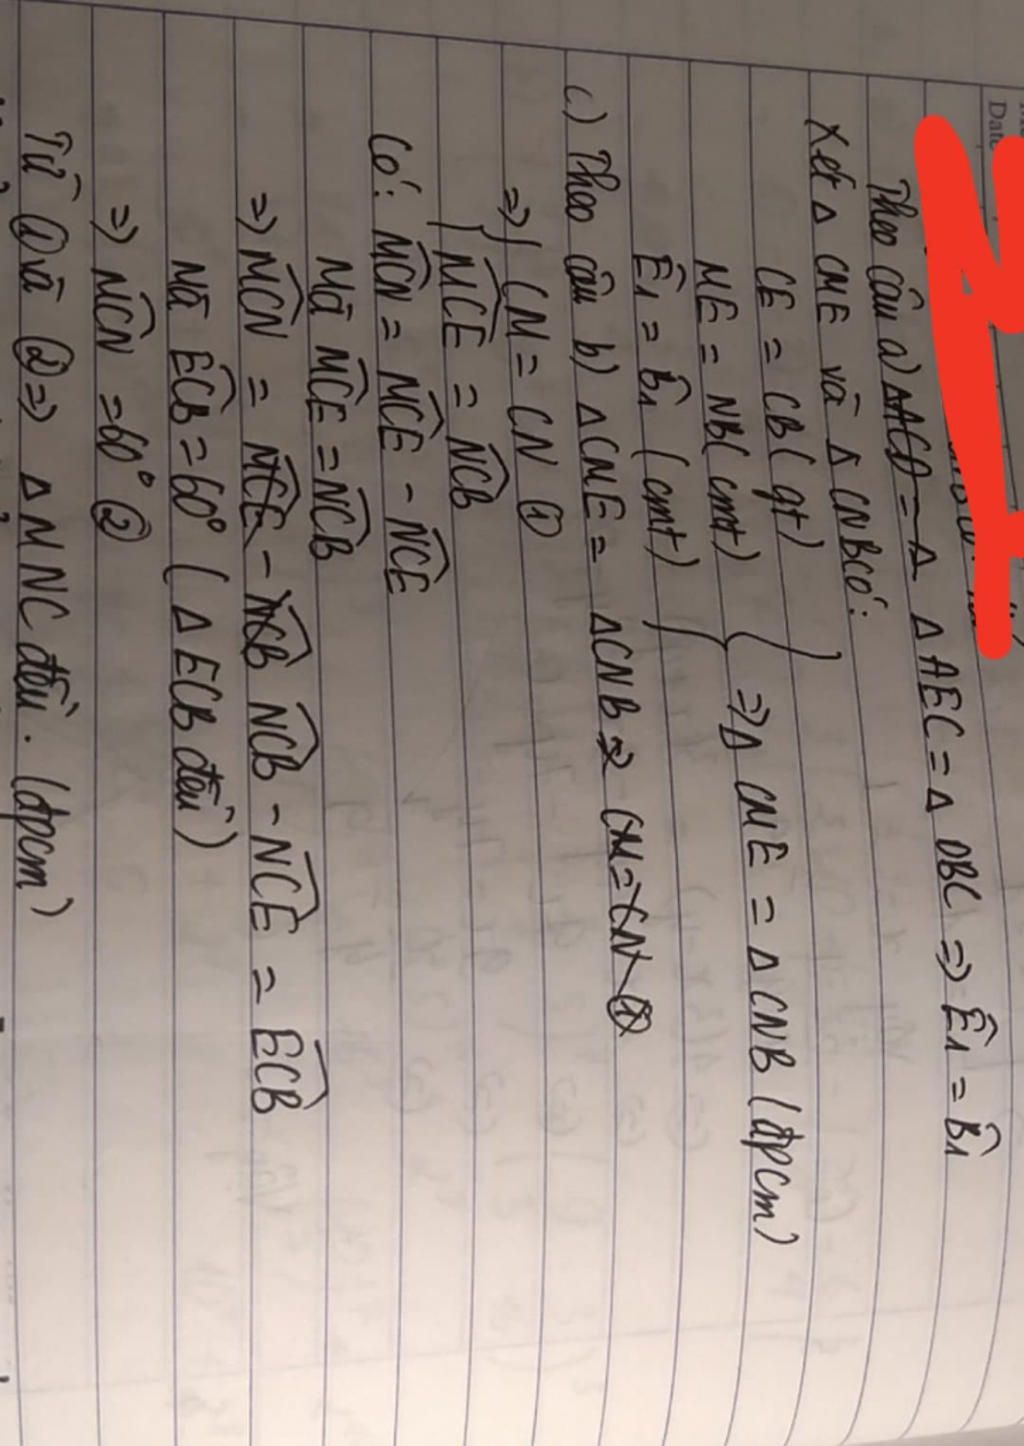 Date
Theo câu a) ΔACD = Δ Δ AEC = Δ DBC => Ê1 = B̂1
Xét Δ CME và Δ CNB có:
CE = CB (gt)
ME = NB (cmt) } => Δ CME = Δ CNB (đpcm)
Ê1 = B̂1 (cmt)
c) Theo câu b) Δ CME = Δ CNB => CM = CN ①
=> { CM = CN ①
{ M̂CE = N̂CB
Có: M̂CN = M̂CE - N̂CE
Mà M̂CE = N̂CB
=> M̂CN = M̂CE - N̂CB N̂CB - N̂CE = ÊCB
Mà ÊCB = 60° (Δ ECB đều)
=> M̂CN = 60° ②
Từ ① và ② => Δ MNC đều. (đpcm)